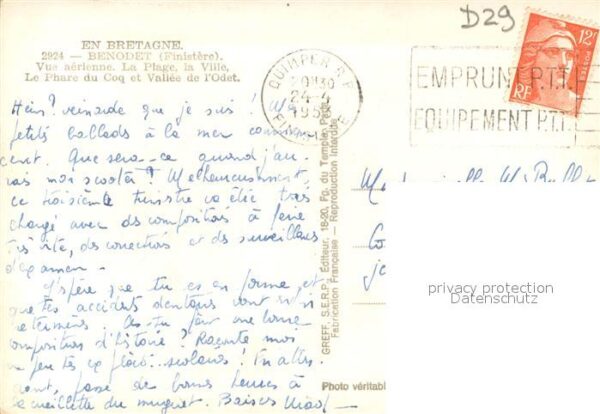 D29
EN BRETAGNE.
2924 — BENODET (Finistère).
Vue aérienne. La Plage, la Ville,
Le Phare du Coq et Vallée de l'Odet.
QUIMPER R.P.
24
FINISTERE
12F
RF
EMPRUNT P.T.T.
EQUIPEMENT P.T.T.
Hein! veinarde que je suis.
petits ballads à la mer commen
cent. Que sera-ce quand j'au
rais mon scooter? Malheureusement,
ce troisième trimestre va être très
chargé avec des compositions à faire
très vite, des corrections et des surveillances
d'examen.
J'espère que tu es en forme et
que tes accidents dentaires sont
terminés. As-tu fait une bonne
composition d'histoire? Raconte moi
un peu tes exploits scolaires! En atten
dant, passe de bonnes heures à
la cueillette du muguet. Baisers
GREFF, S.E.R.P., Éditeur, 18-20, Fg. du Temple, Paris
Fabrication Française — Reproduction Interdite
Photo véritable
privacy protection
Datenschutz